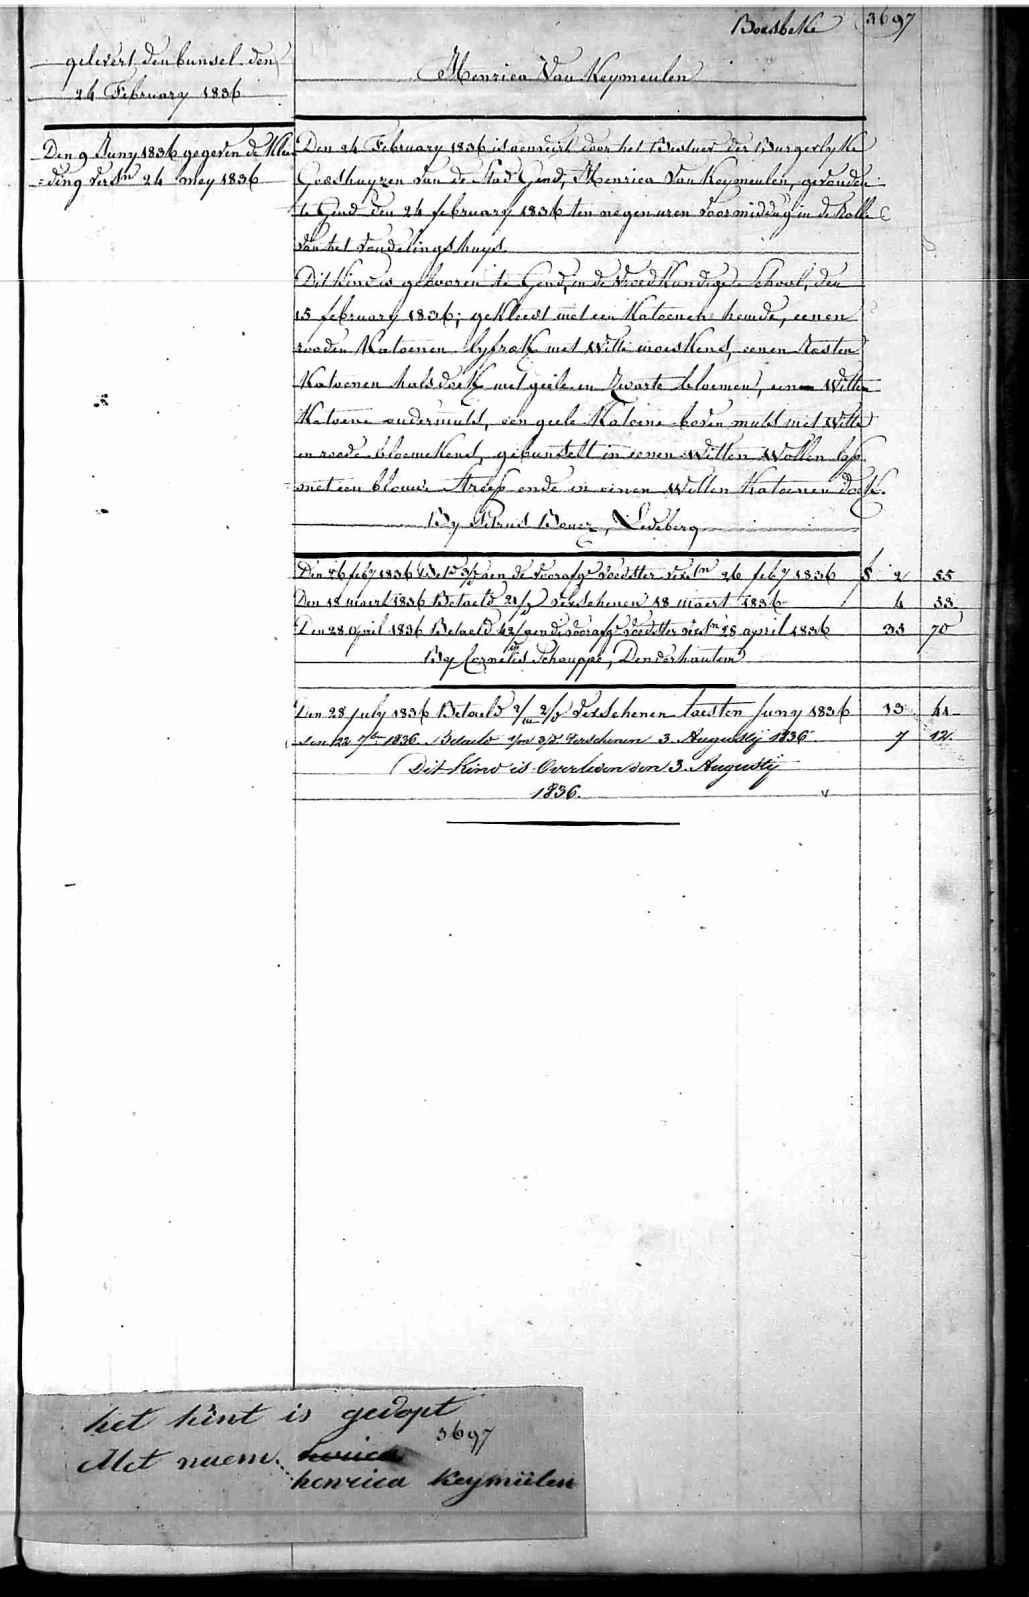 Boesbeke 3697
gelevert den bunsel den
24 February 1836
Henrica Van Keymeulen
Den 9 Juny 1836 gegeven de Klee
=ding versn 24 mey 1836
Den 24 February 1836 is aenveird door het Bestuer der Burgerlyke
Godshuyzen van de Stad Gend, Henrica Van Keymeulen, gevonden
te Gend den 24 february 1836 ten negen uren voormiddag in de Rolle
van het vondelingshuys
Dit Kind is gebooren te Gend, in de Vroedkundige School, den
15 february 1836; gekleed met een Katoenen hemde, eenen
rooden Katoenen lyfrok met witte moeskens, eenen
Katoenen halsdoek met geele en Zwarte bloemen, eene Witte
Katoene ondermuts, een geele Katoene boven muts met Witte
en roode bloemekens, gebunselt in eenen Witten Wollen lap
met een blauwe Streep ende in eenen Witten Katoenen doek.
By Petrus , Ledeberg
Den 26 feby 1836 aen de voorafge voedster versn 26 feby 1836 2 55
Den 18 maert 1836 Betaeld 21/d verschenen 18 maert 1836 4 53
Den 28 April 1836 Betaeld aen de voorafge voedster versn 28 april 1836 35 70
By Cornelis Schouppe, Denderhautem
Den 28 july 1836 Betaeld 2/m 2/d verschenen laesten Juny 1836 13 41
den 22 7br 1836 Betaeld 1/m 3/d verschenen 3 Augusty 1836 7 12
Dit Kind is Overleden den 3 Augusty
1836.
het kint is gedopt
3697
Met naem
henrica keymülen